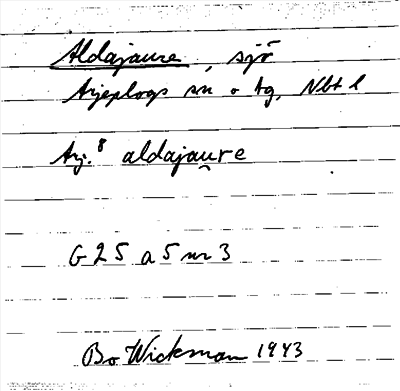 Aldajaure, sjö
Arjeplogs sn o tg, Nbt l
Arj.⁸ aldajau̯re
G 25 a 5 nr 3
Bo Wickman 1943